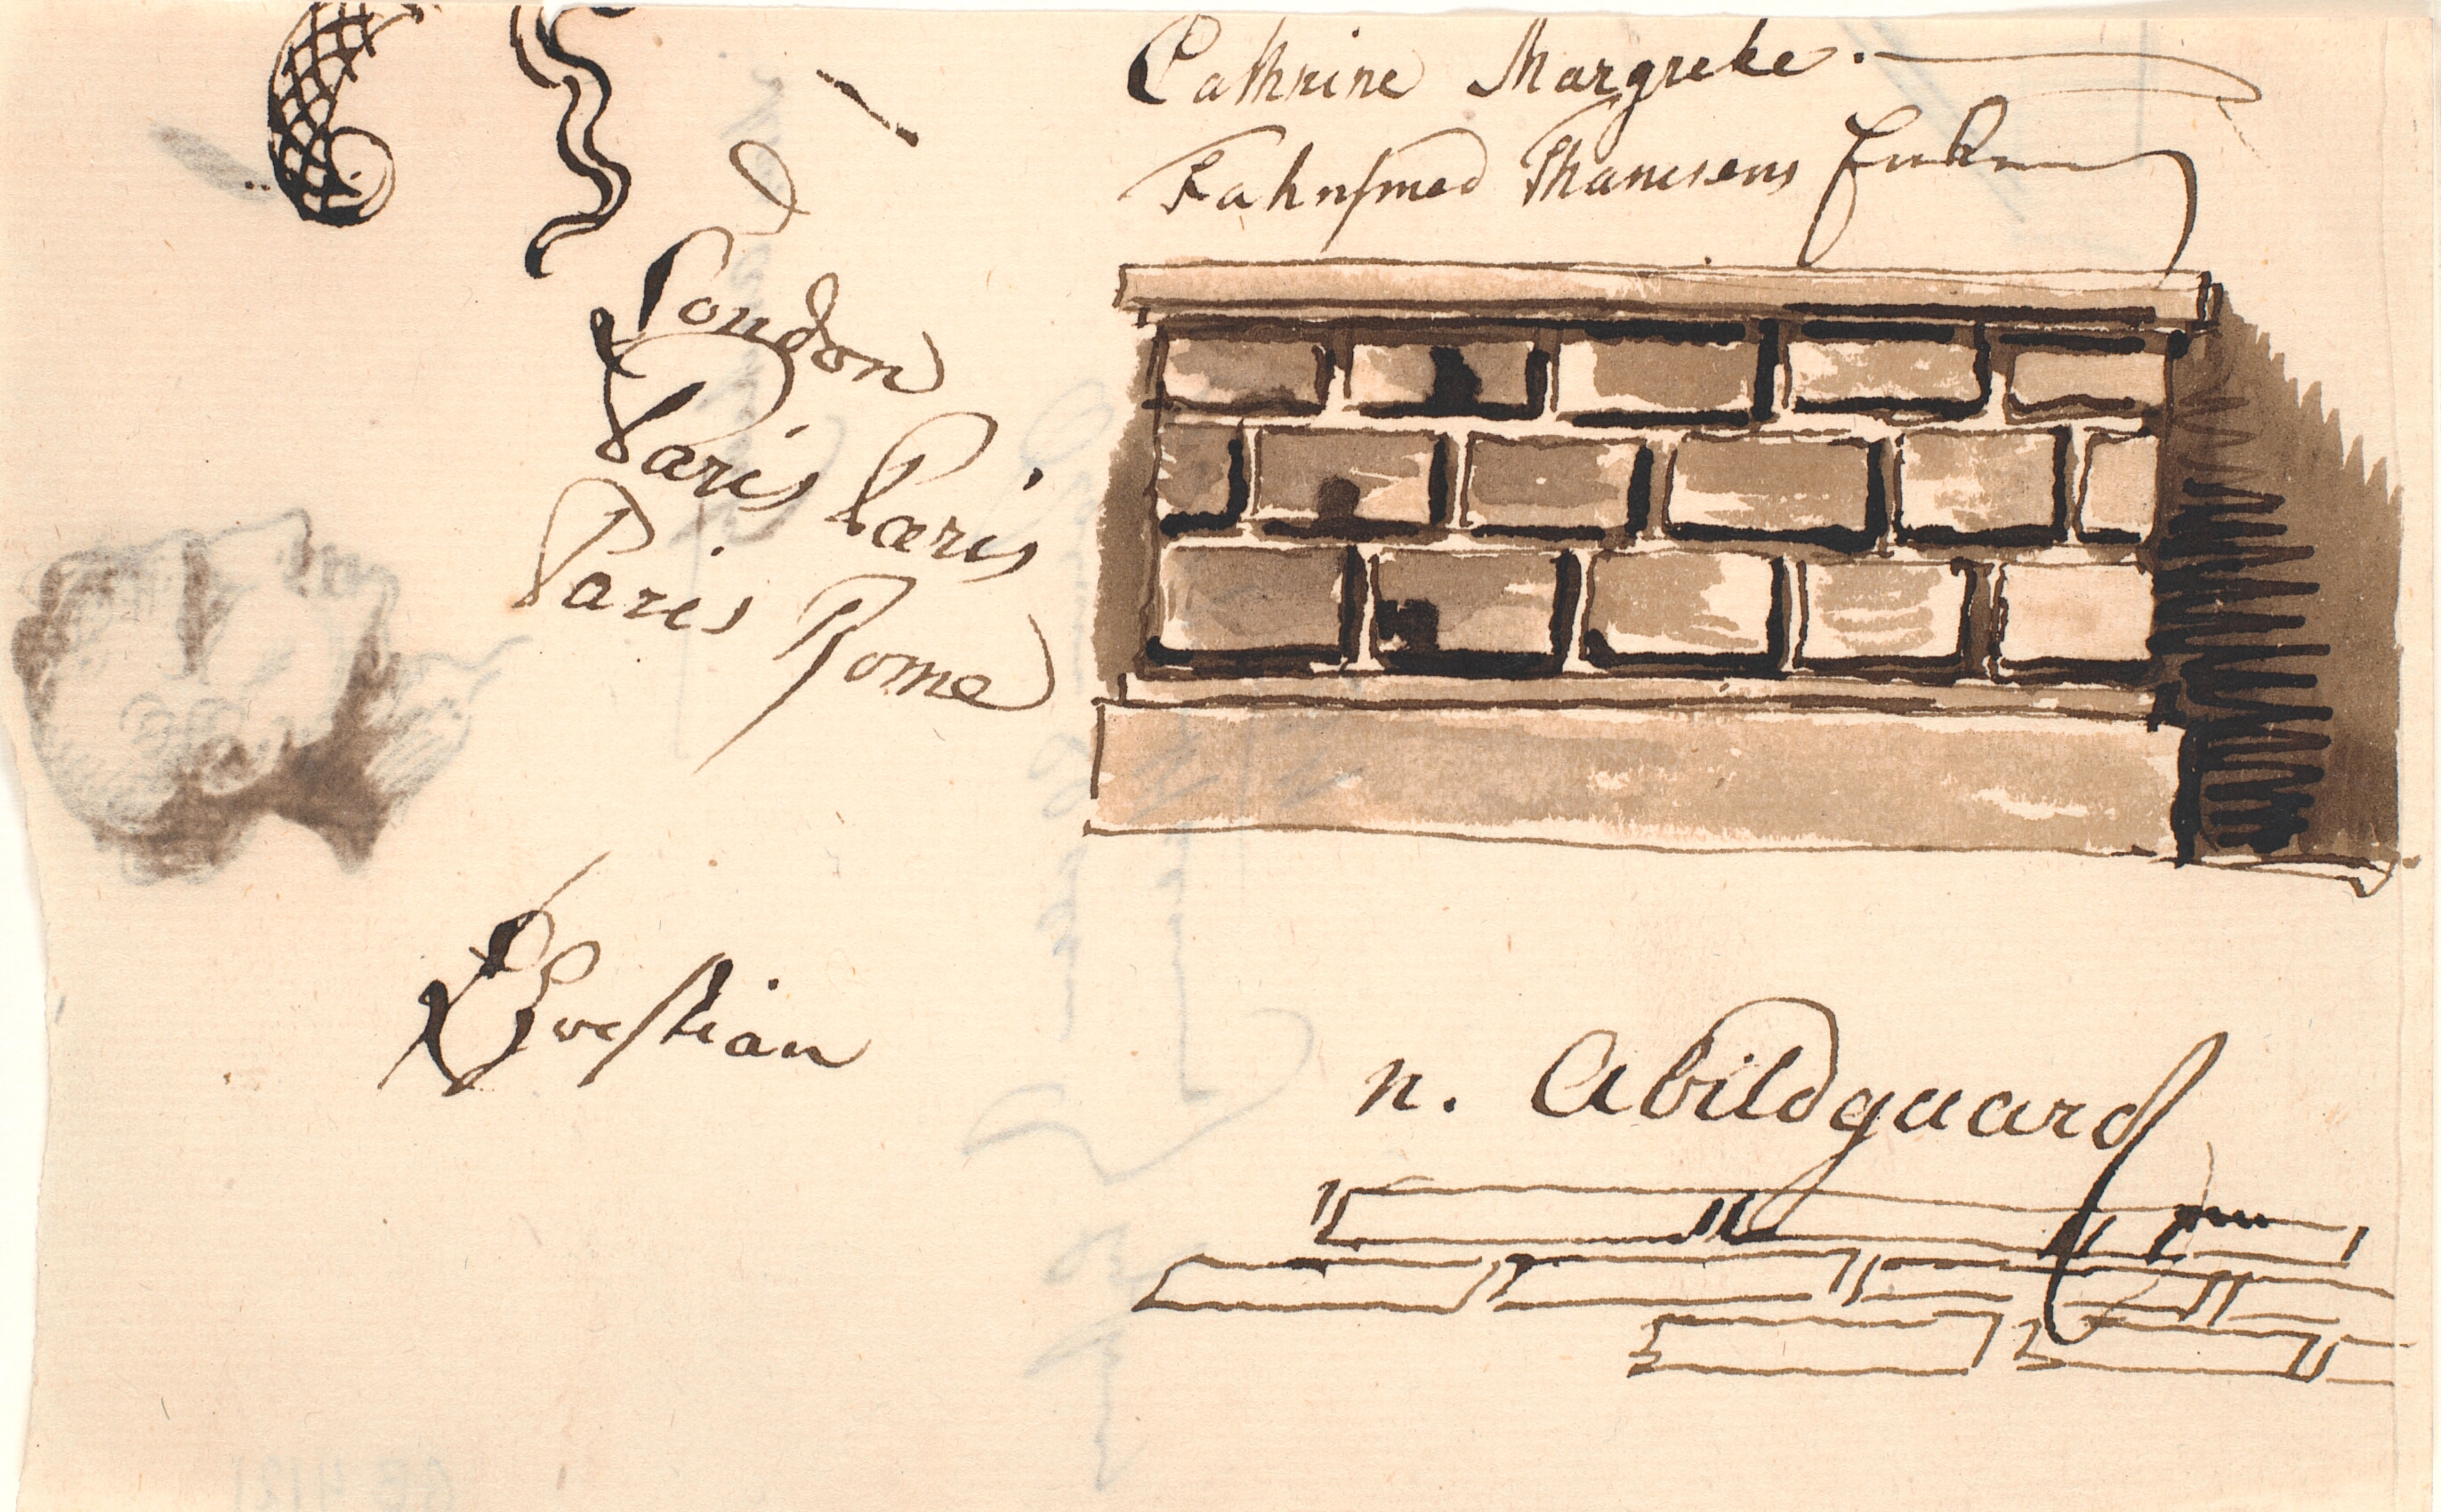 Cathrine Margrete.
Fahnsmed Thamsens Enke
London
Paris Paris
Paris Rome
n. Abildgaard